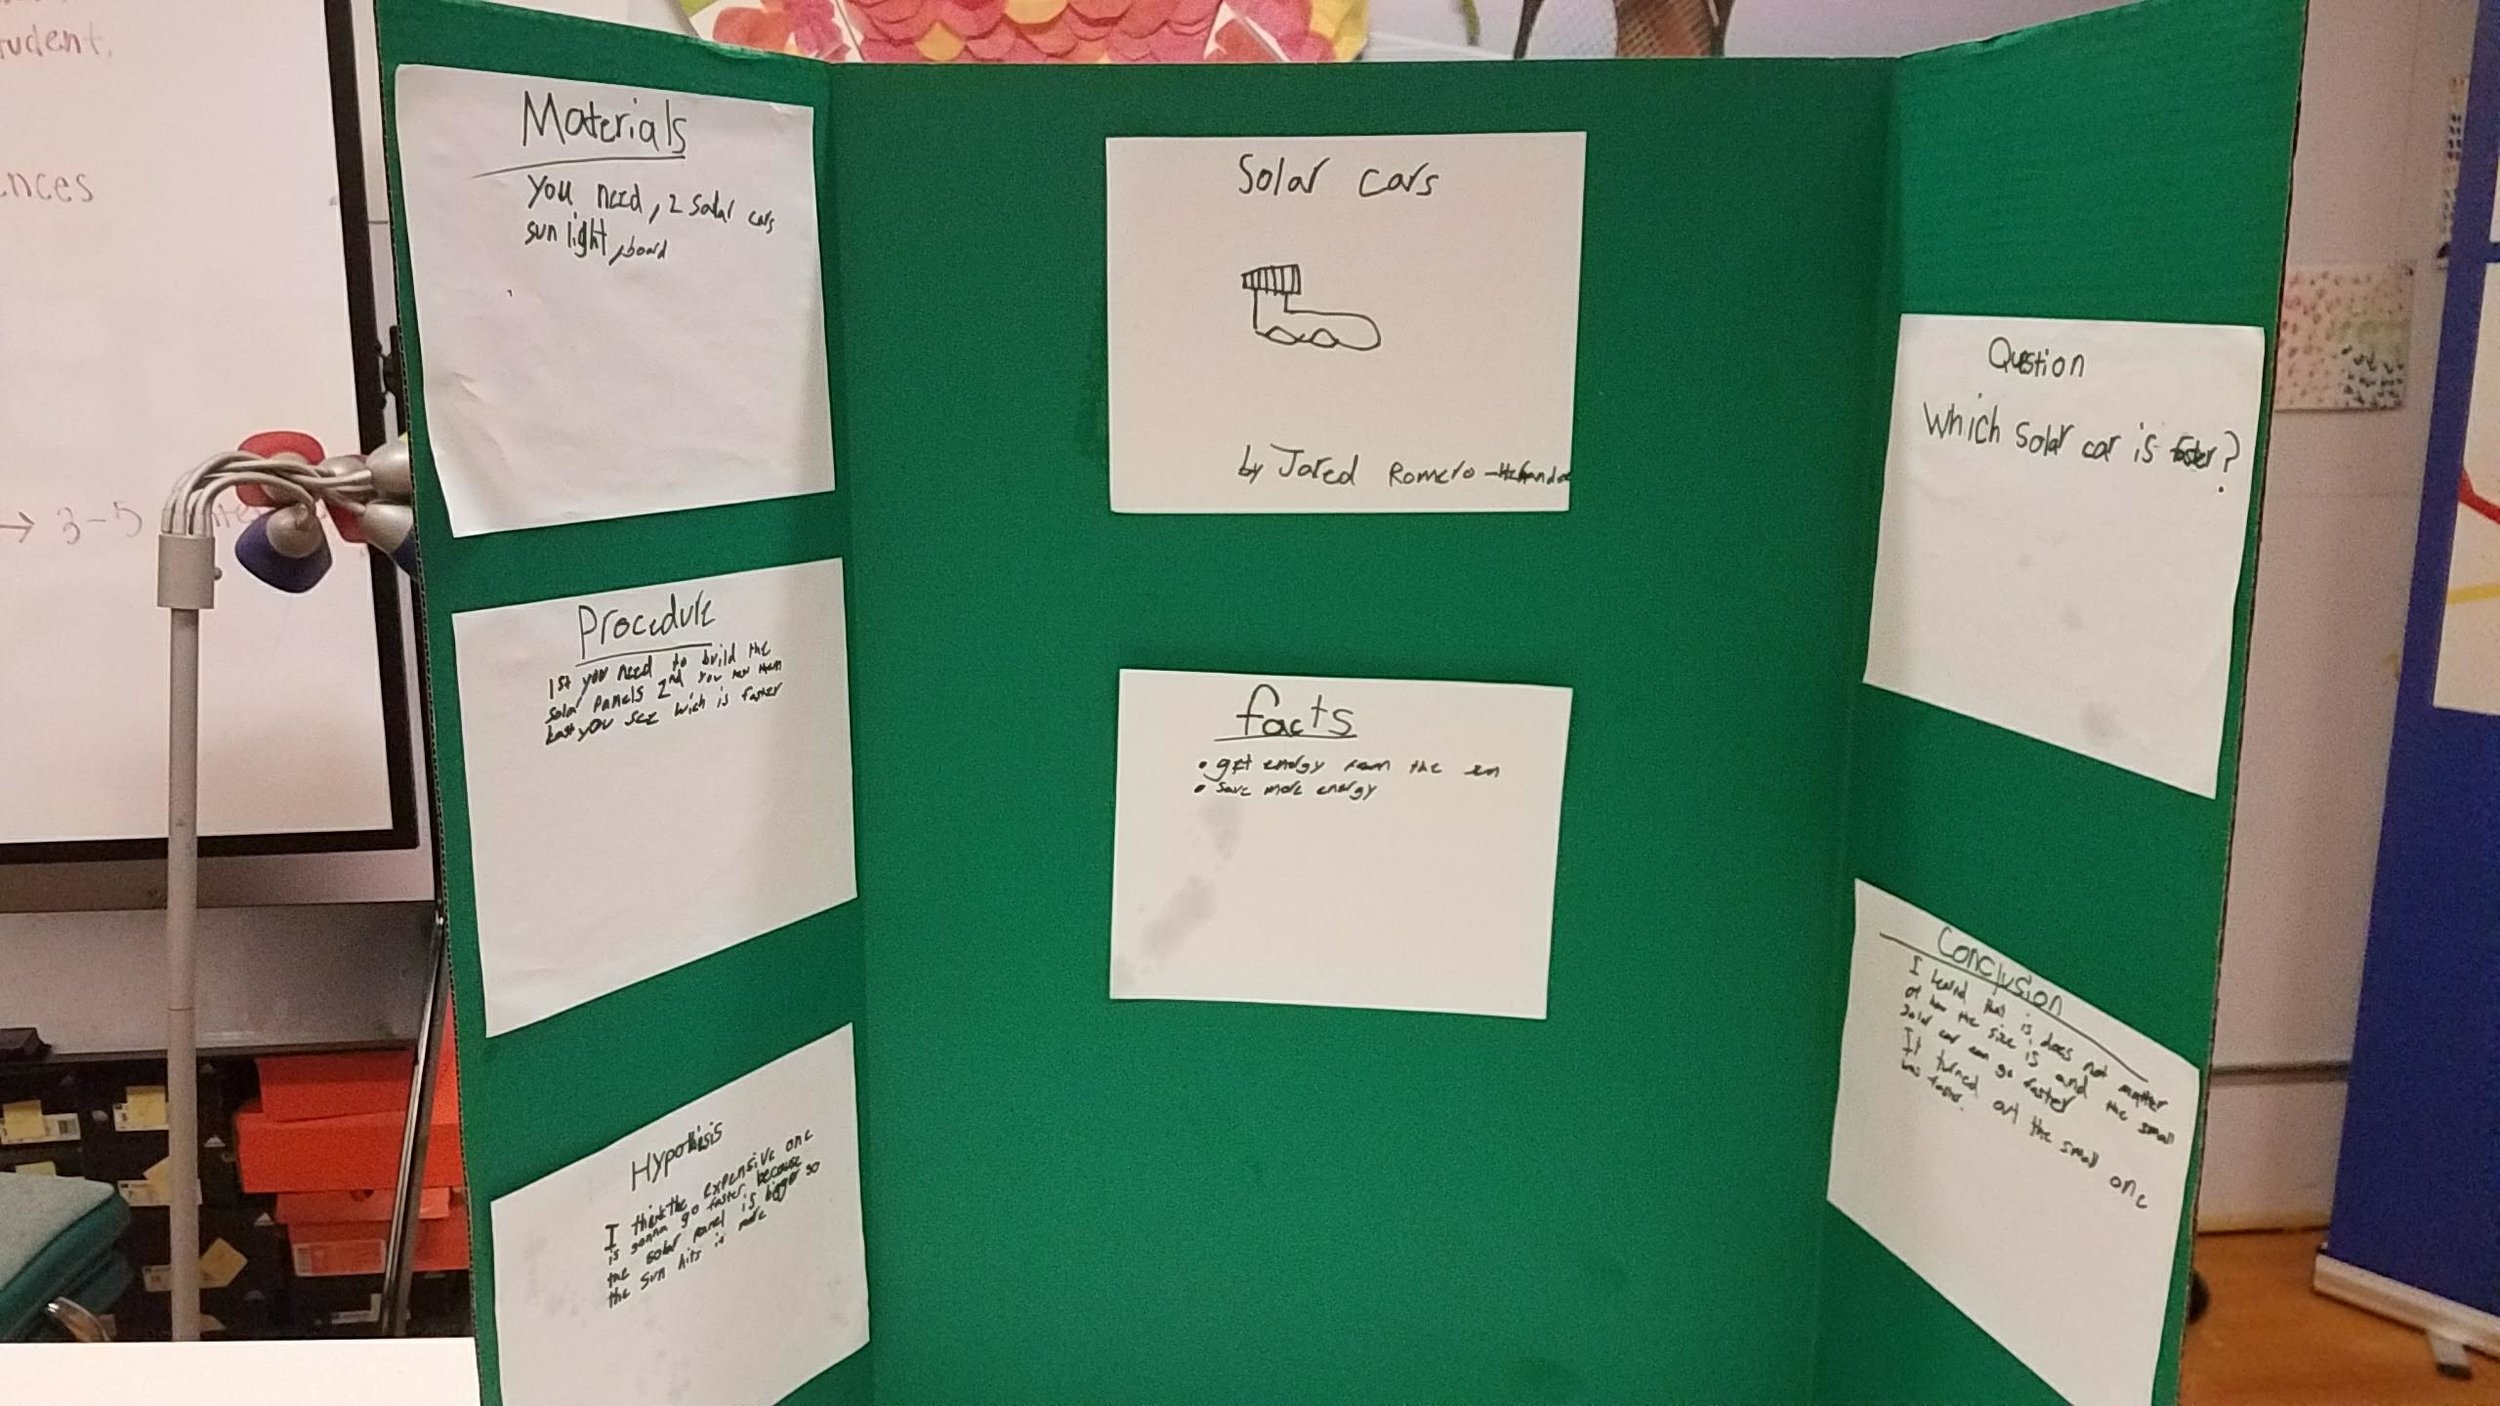 udent.
ences
→ 3-5
Materials
you need, 2 solar cars
sun light, board
Procedure
1st you need to build the
solar panels 2nd you test them
Last you see wich is faster
Hypothisis
I think the expensive one
is gonna go faster, because
the solar panel is bigger so
the sun hits it more
Solar cars
by Jared Romero-
facts
• get energy from the sun
• save more energy
Question
Which solar car is faster?
Conclusion
I that is does not matter
of how the size is and the small
solar car can go faster
It turned out the small one
was faster.